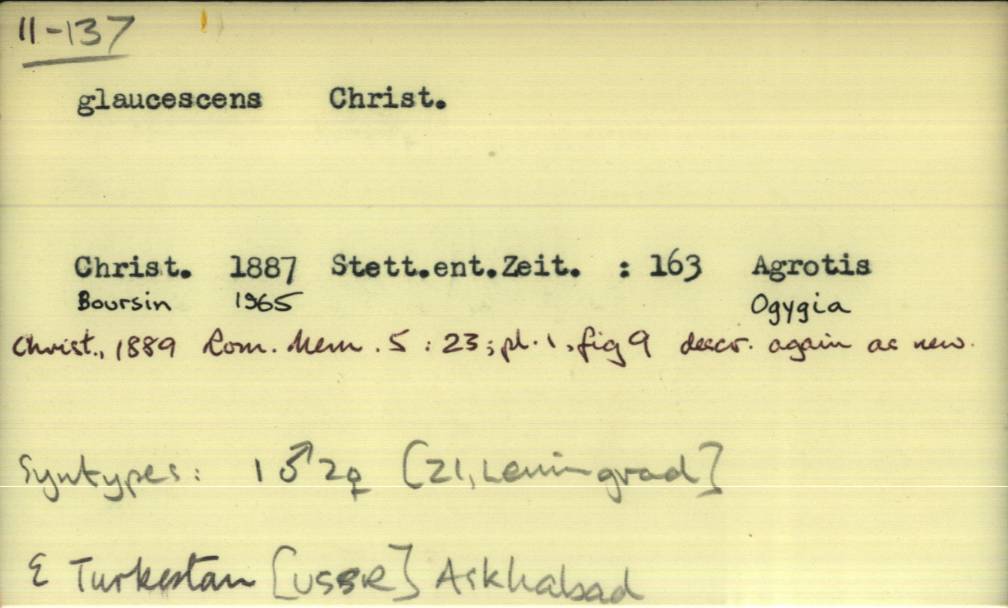 11-137
glaucescens Christ.
Christ. 1887 Stett.ent.Zeit. : 163 Agrotis
Boursin 1965 Ogygia
Christ., 1889 Rom. Mem. 5 : 23; pl. 1, fig 9 descr. again as new.
Syntypes: 1 ♂ 2♀ [ZI, Leningrad]
E Turkestan [USSR] Askhabad